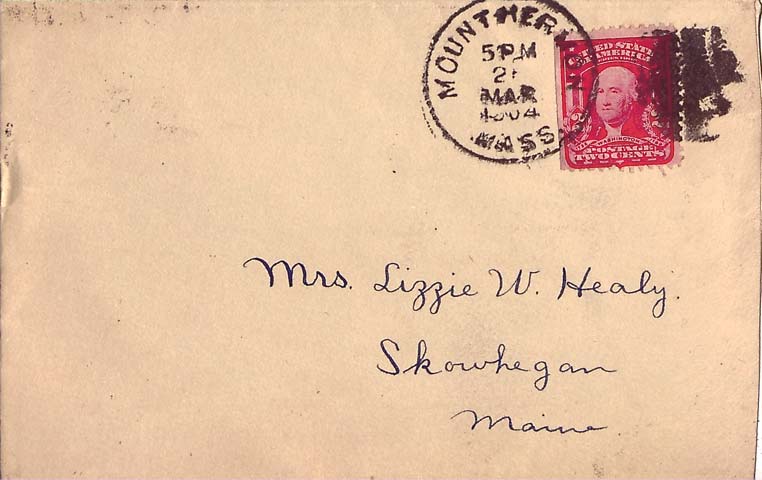 MOUNT HER
5 PM
MAR
1904
MASS
UNITED STATES
OF AMERICA
WASHINGTON
POSTAGE
TWO CENTS
Mrs. Lizzie W. Healy.
Skowhegan
Maine